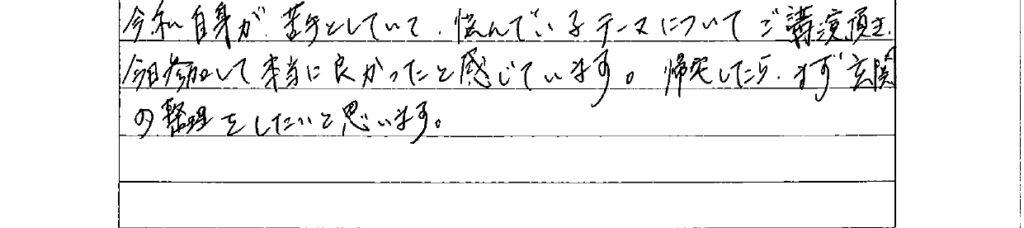 今私自身が苦手としていて、悩んでいるテーマについてご講演頂き、
今日参加して本当に良かったと感じています。帰宅したら、まず玄関
の整理をしたいと思います。